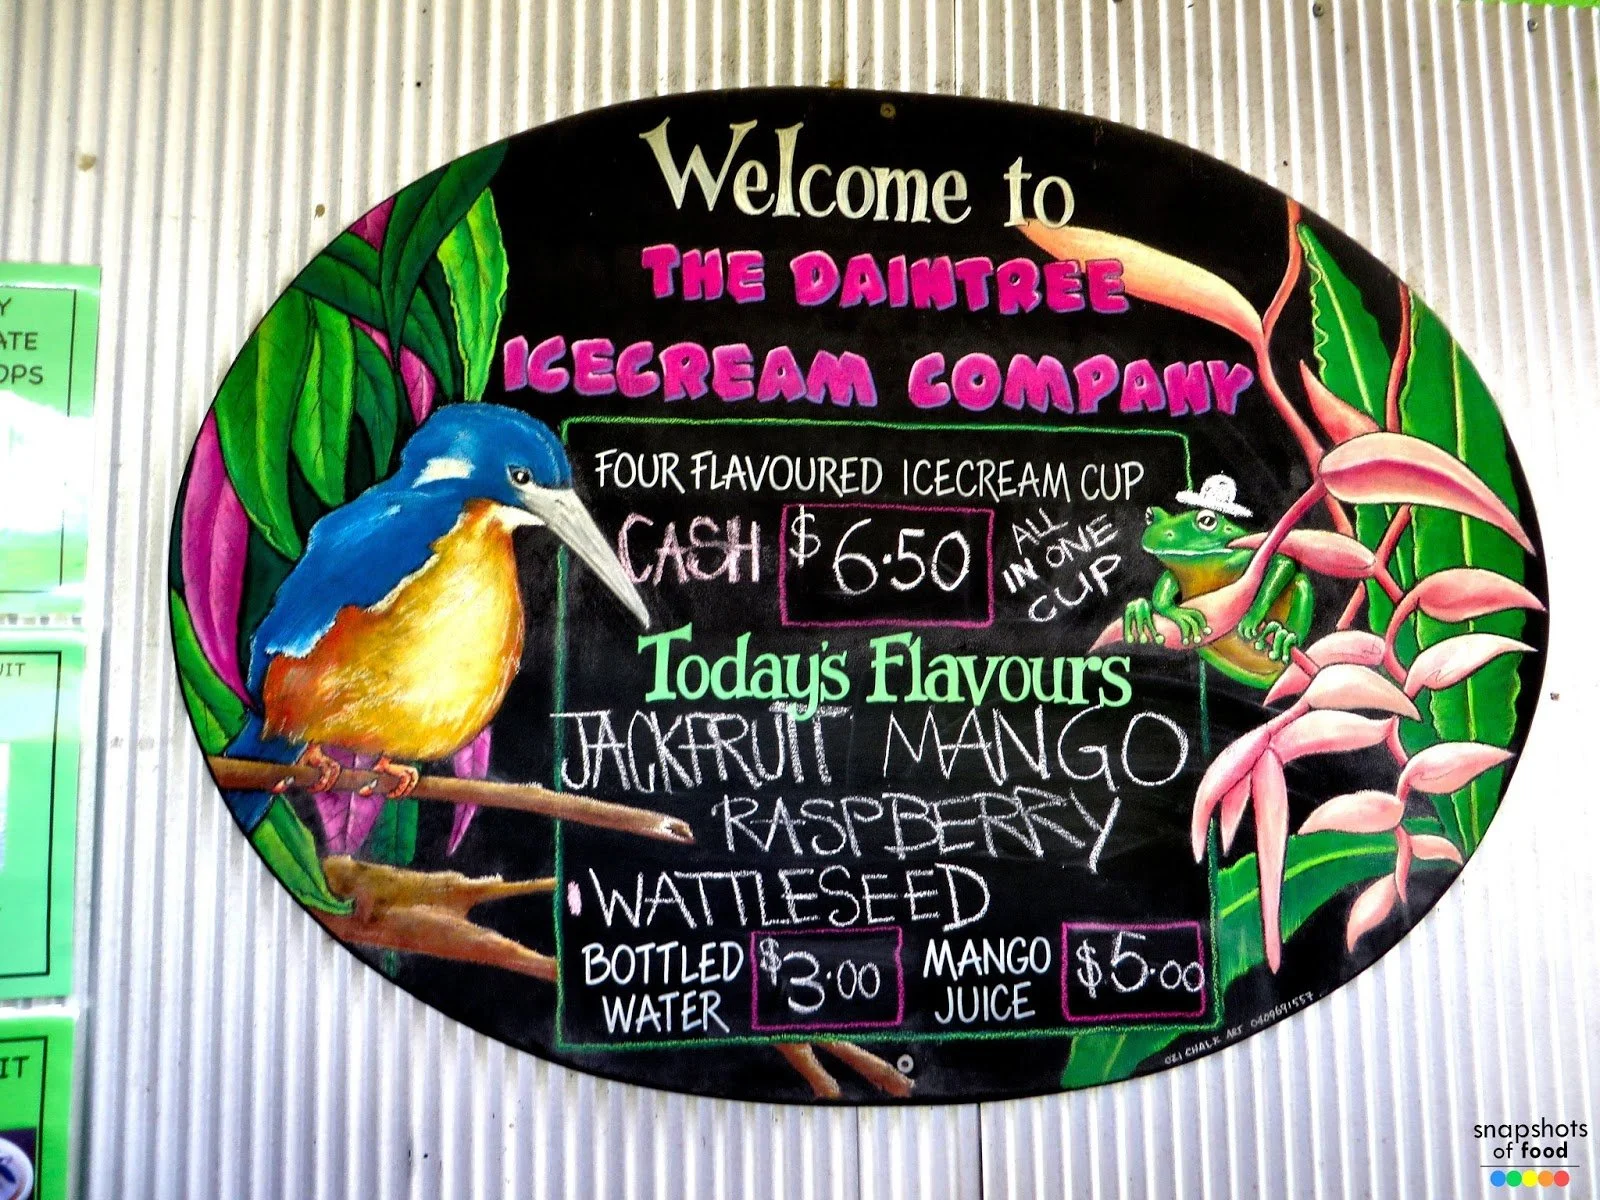 Welcome to
THE DAINTREE
ICECREAM COMPANY
FOUR FLAVOURED ICECREAM CUP
CASH $6.50 ALL
IN ONE
CUP
Today's Flavours
JACKFRUIT MANGO
RASPBERRY
WATTLESEED
BOTTLED
WATER
$3.00
MANGO
JUICE
$5.00
OZI CHALK ART 0409691557
Y
ATE
OPS
UIT
IT
snapshots
of food